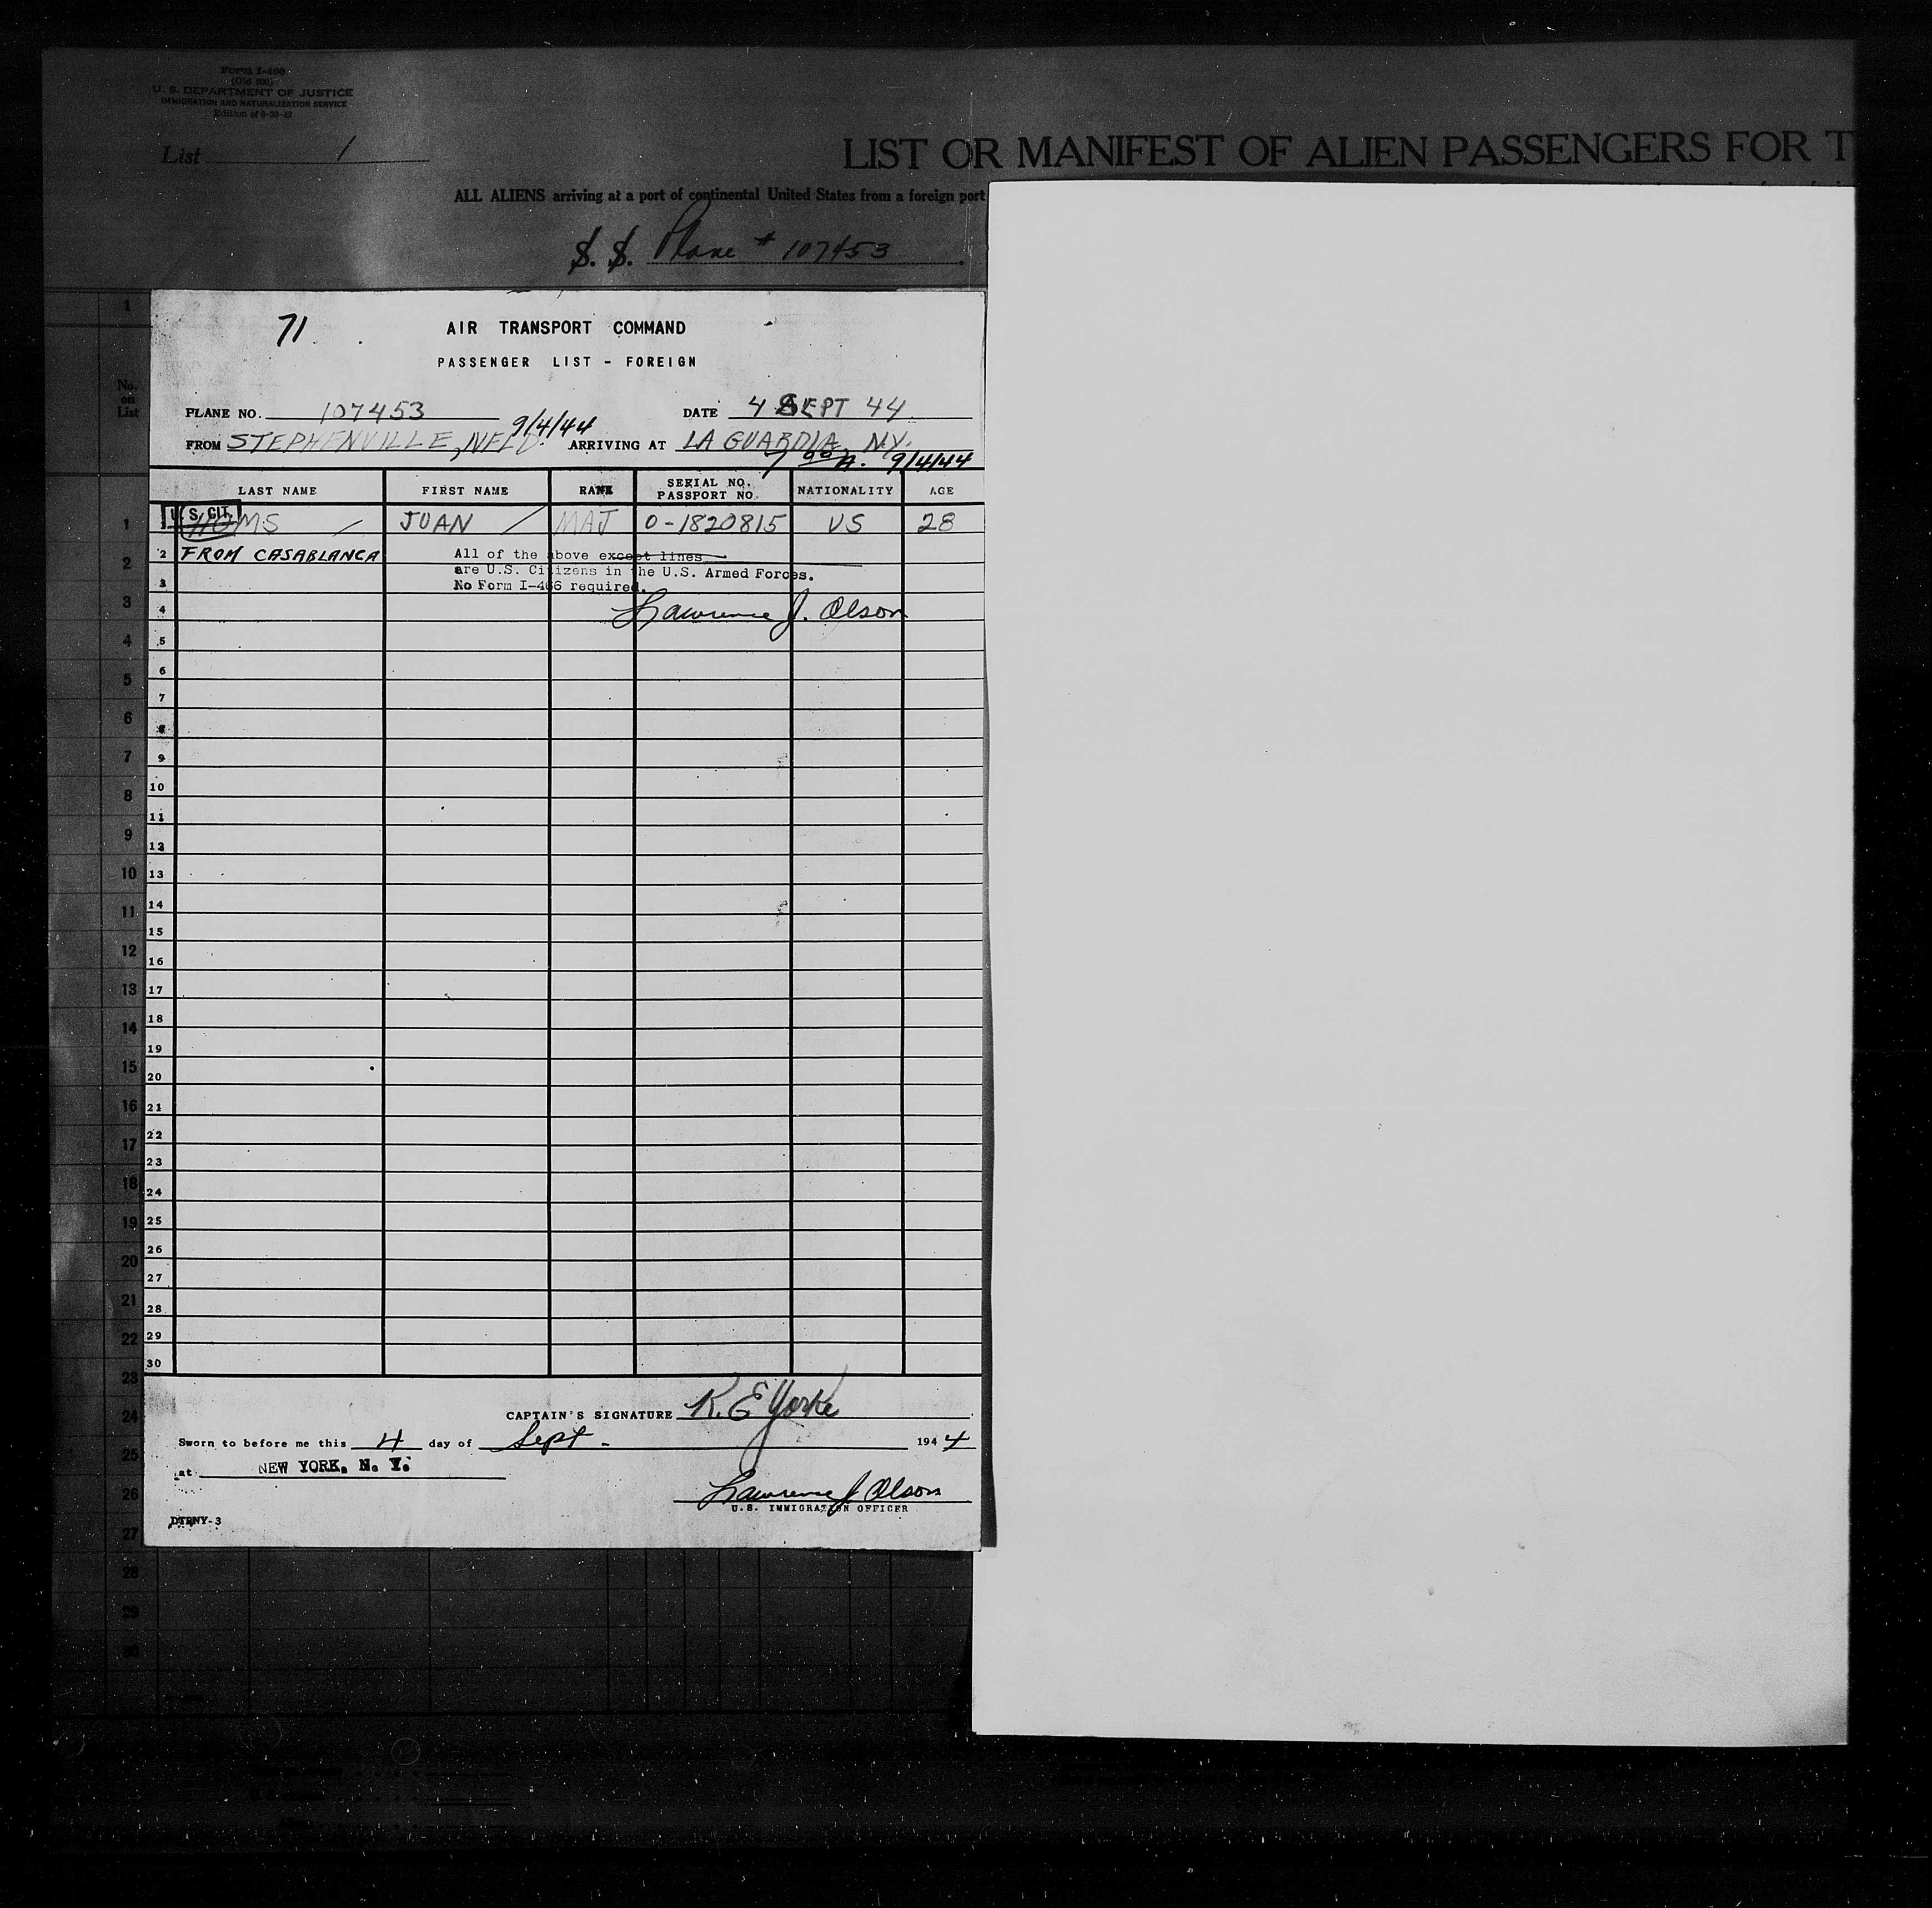 Form I-466
(Old 500)
U. S. DEPARTMENT OF JUSTICE
IMMIGRATION AND NATURALIZATION SERVICE
Edition of
List 1
LIST OR MANIFEST OF ALIEN PASSENGERS FOR T
ALL ALIENS arriving at a port of continental United States from a foreign port
S. S. Plane # 107453
71
AIR TRANSPORT COMMAND
PASSENGER LIST - FOREIGN
PLANE NO. 107453 DATE 4 SEPT 44
9/4/44
FROM STEPHENVILLE, NFLD. ARRIVING AT LA GUARDIA, N.Y.
A. 9/4/44
No. on List
LAST NAME FIRST NAME RANK SERIAL NO. PASSPORT NO. NATIONALITY AGE
U. S. CIT.
1 HOMS JUAN MAJ O-1820815 US 28
2 FROM CASABLANCA
All of the above except lines
are U.S. Citizens in the U.S. Armed Forces.
No Form I-466 required.
Lawrence J. Olson
3
4
5
6
7
8
9
10
11
12
13
14
15
16
17
18
19
20
21
22
23
24
25
26
27
28
29
30
1
1
2
3
4
5
6
7
8
9
10
11
12
13
14
15
16
17
18
19
20
21
22
23
24
25
26
27
28
29
30
CAPTAIN'S SIGNATURE R. E Yorke
Sworn to before me this 4 day of Sept - 1944
at NEW YORK, N. Y.
Lawrence J. Olson
U.S. IMMIGRATION OFFICER
DTRNY-3